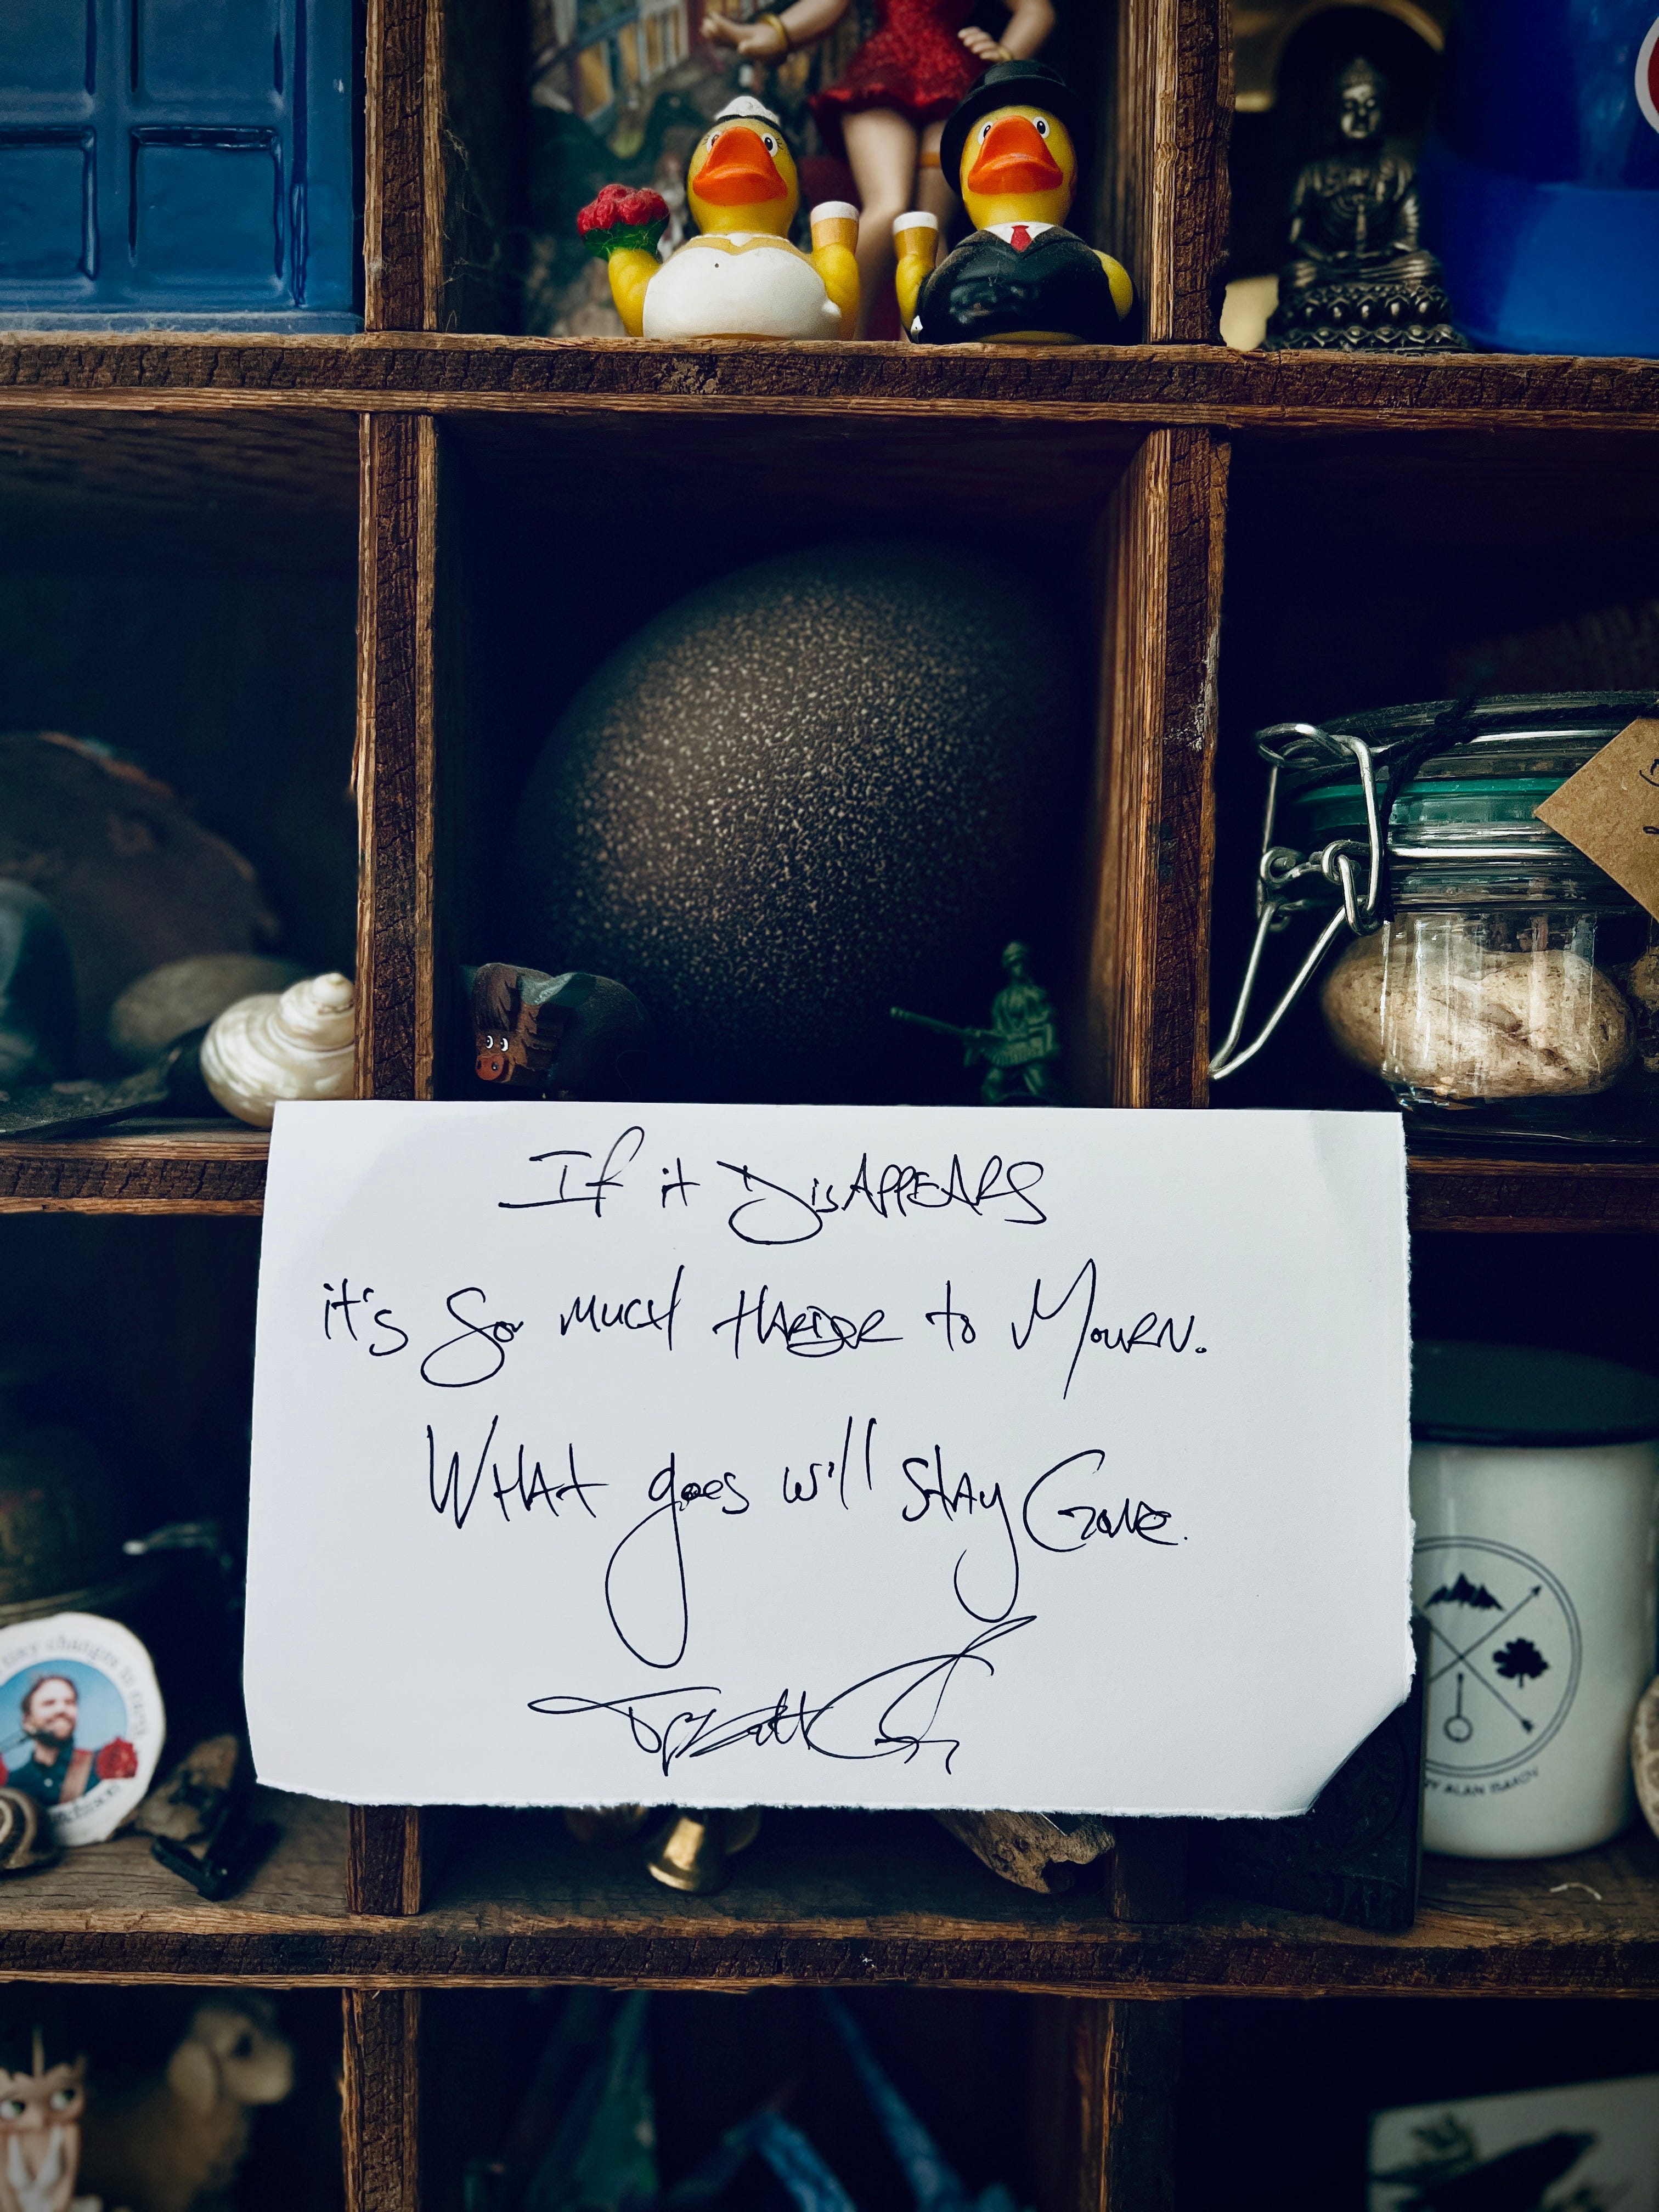 If it DisAPPEARS
it's So MUCH HARDER to MOURN.
WHAt goes will StAy GONE.
tiny changes
BY ALAN